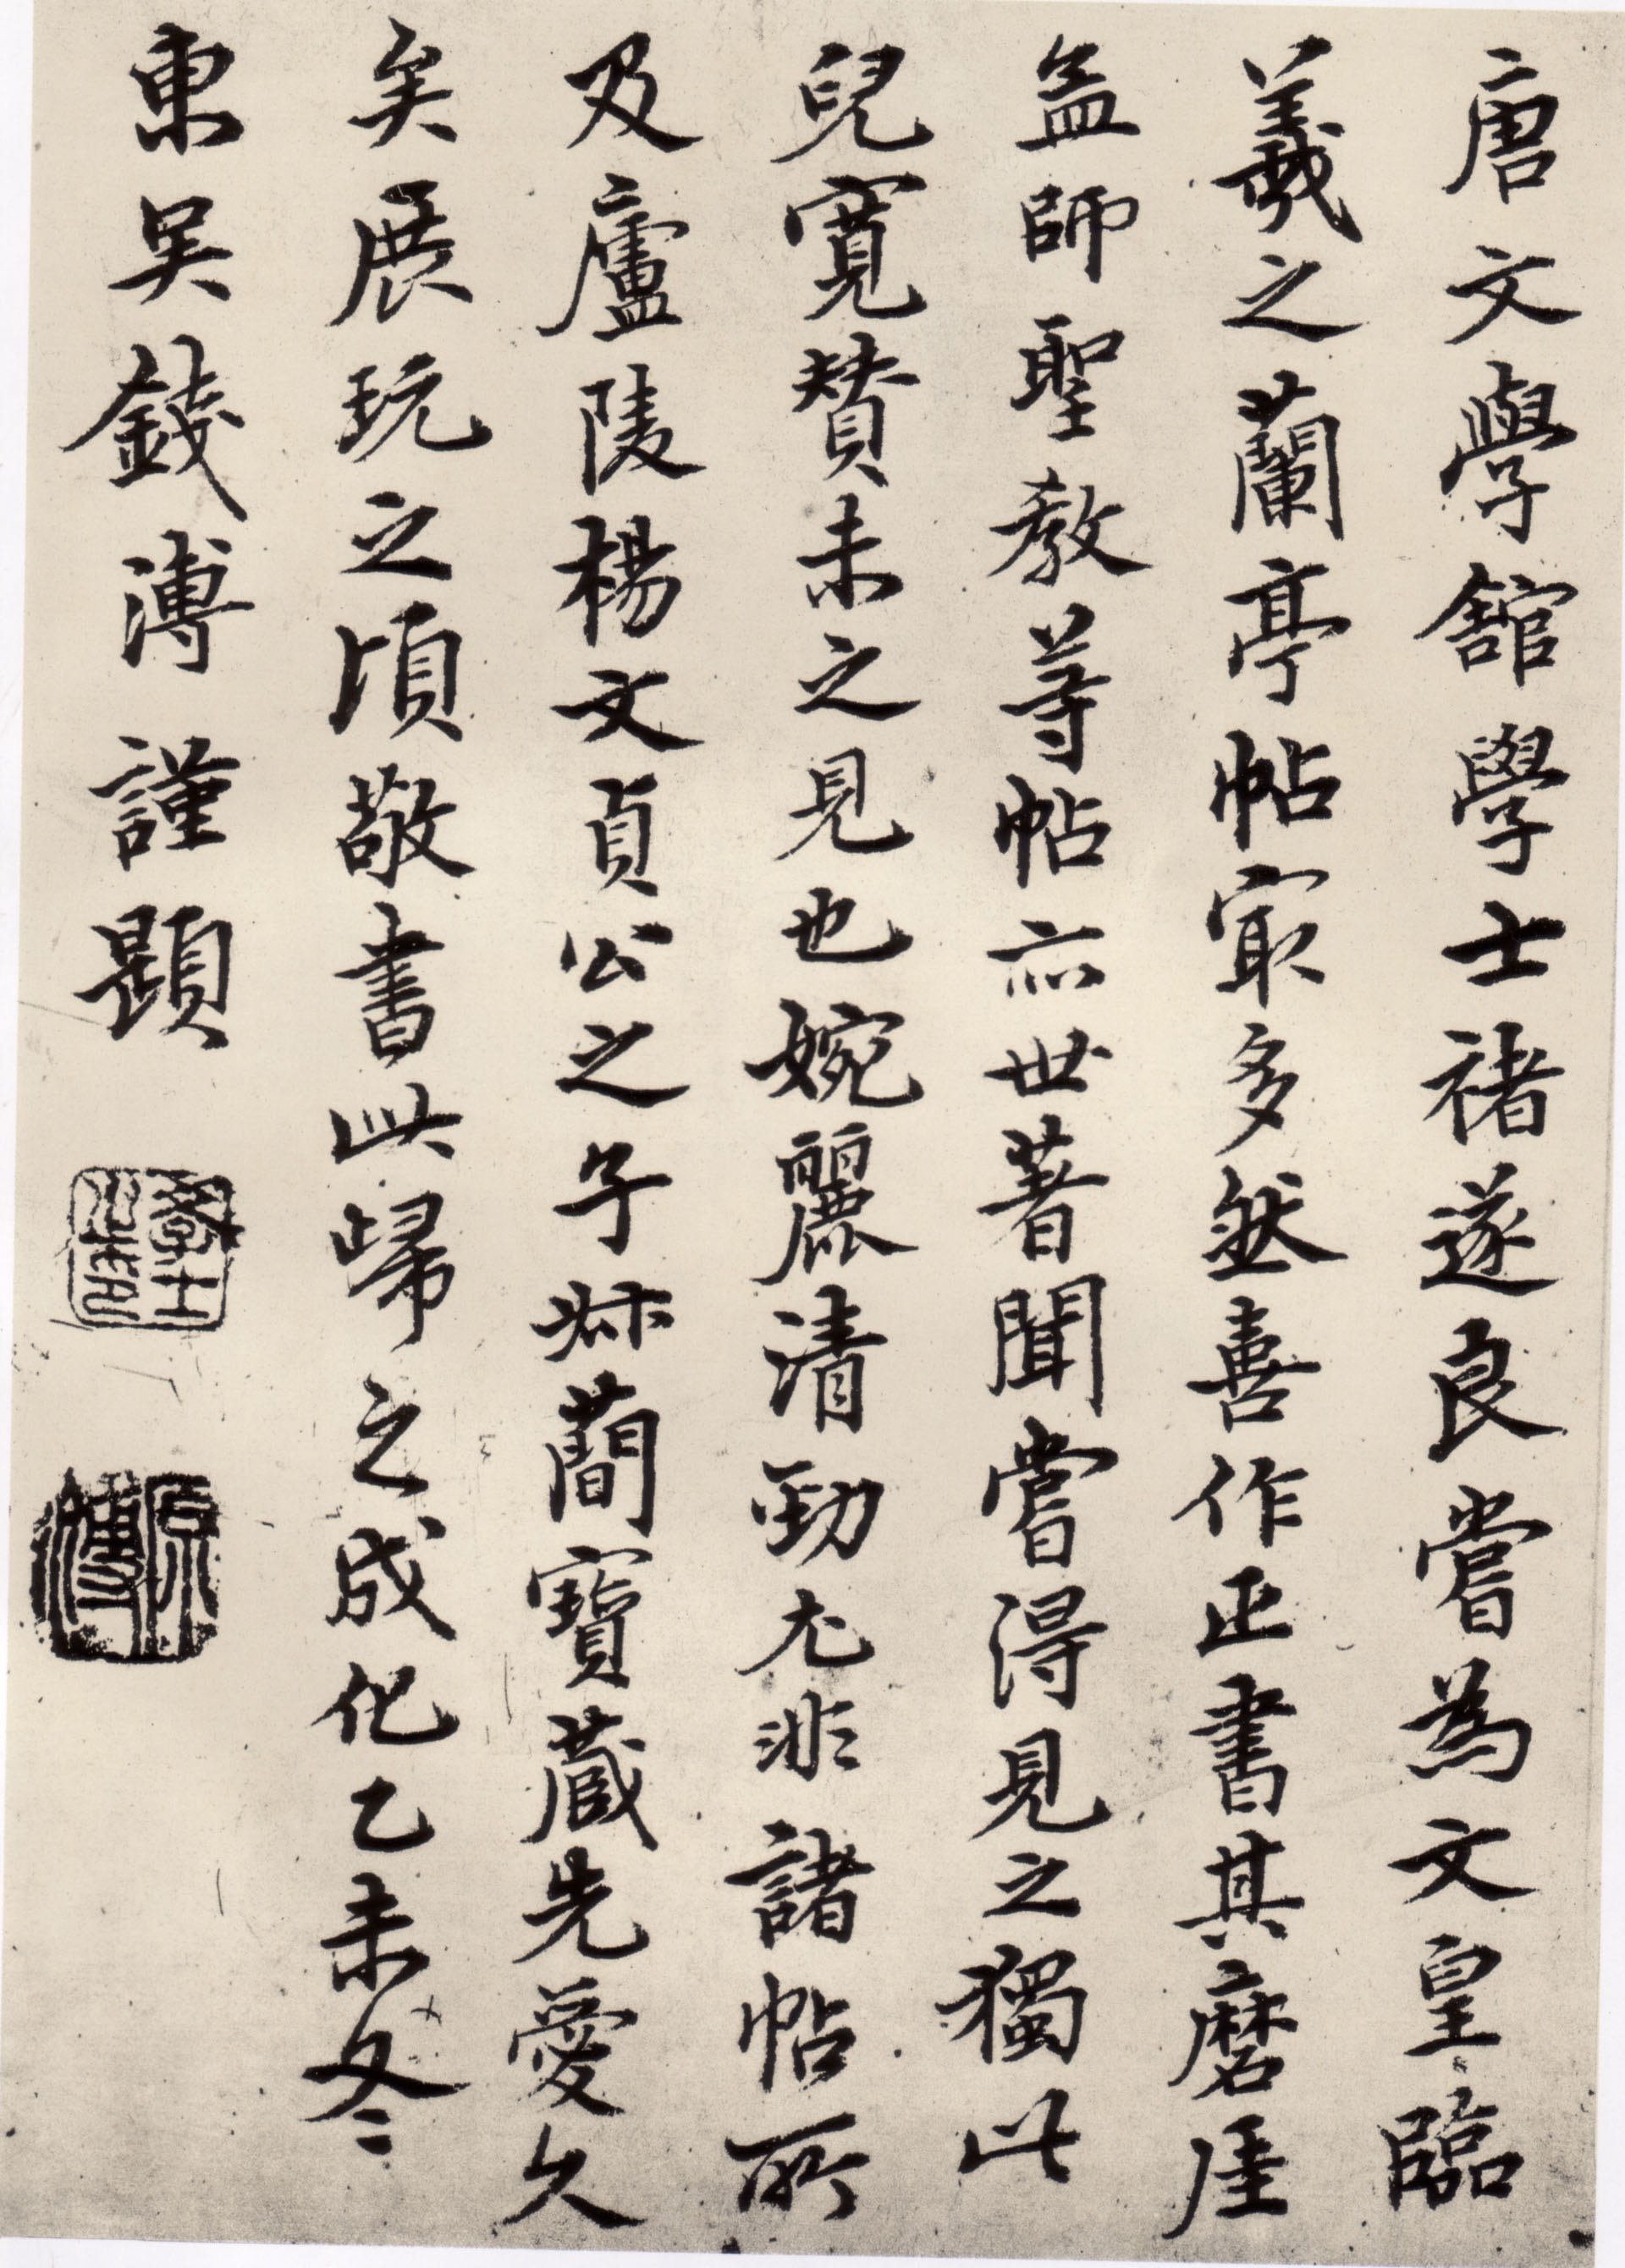 唐文學舘學士褚遂良嘗為文皇臨
羲之蘭亭帖㝡多然喜作正書其磨厓
孟師聖教等帖亦世著聞嘗得見之獨此
兒寬賛未之見也婉麗清勁尤非諸帖所
及廬陵楊文貞公之子叔蕳寶蔵先愛久
矣展玩之頃敬書此歸之成化乙未冬
東吴錢溥謹題
學士
原溥